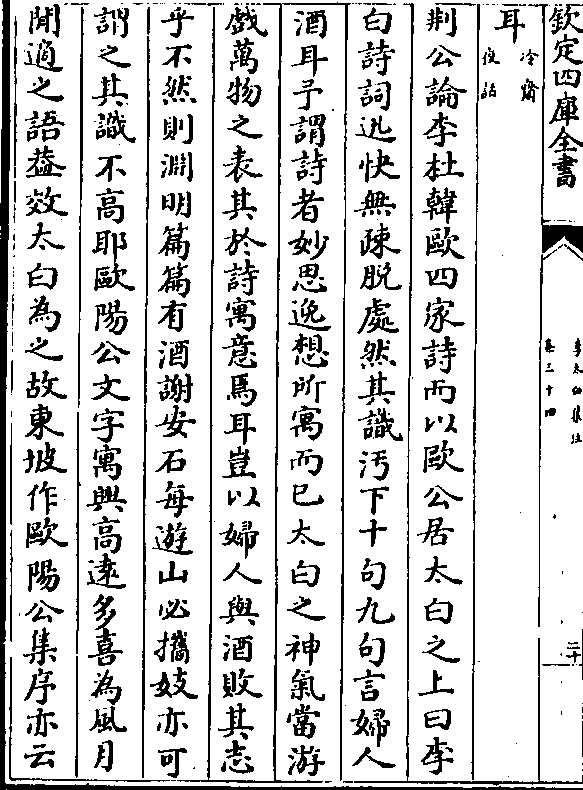 欽定四庫全書
李太白集注
卷三十四
二十
耳
冷齋
夜話
荆公論李杜韓歐四家詩而以歐公居太白之上曰李
白詩詞迅快無疎脫處然其識汚下十句九句言婦人
酒耳予謂詩者妙思逸想所寓而已太白之神氣當游
戲萬物之表其於詩寓意焉耳豈以婦人與酒敗其志
乎不然則淵明篇篇有酒謝安石每遊山必攜妓亦可
謂之其識不高耶歐陽公文字寓興高遠多喜為風月
閒適之語葢效太白為之故東坡作歐陽公集序亦云